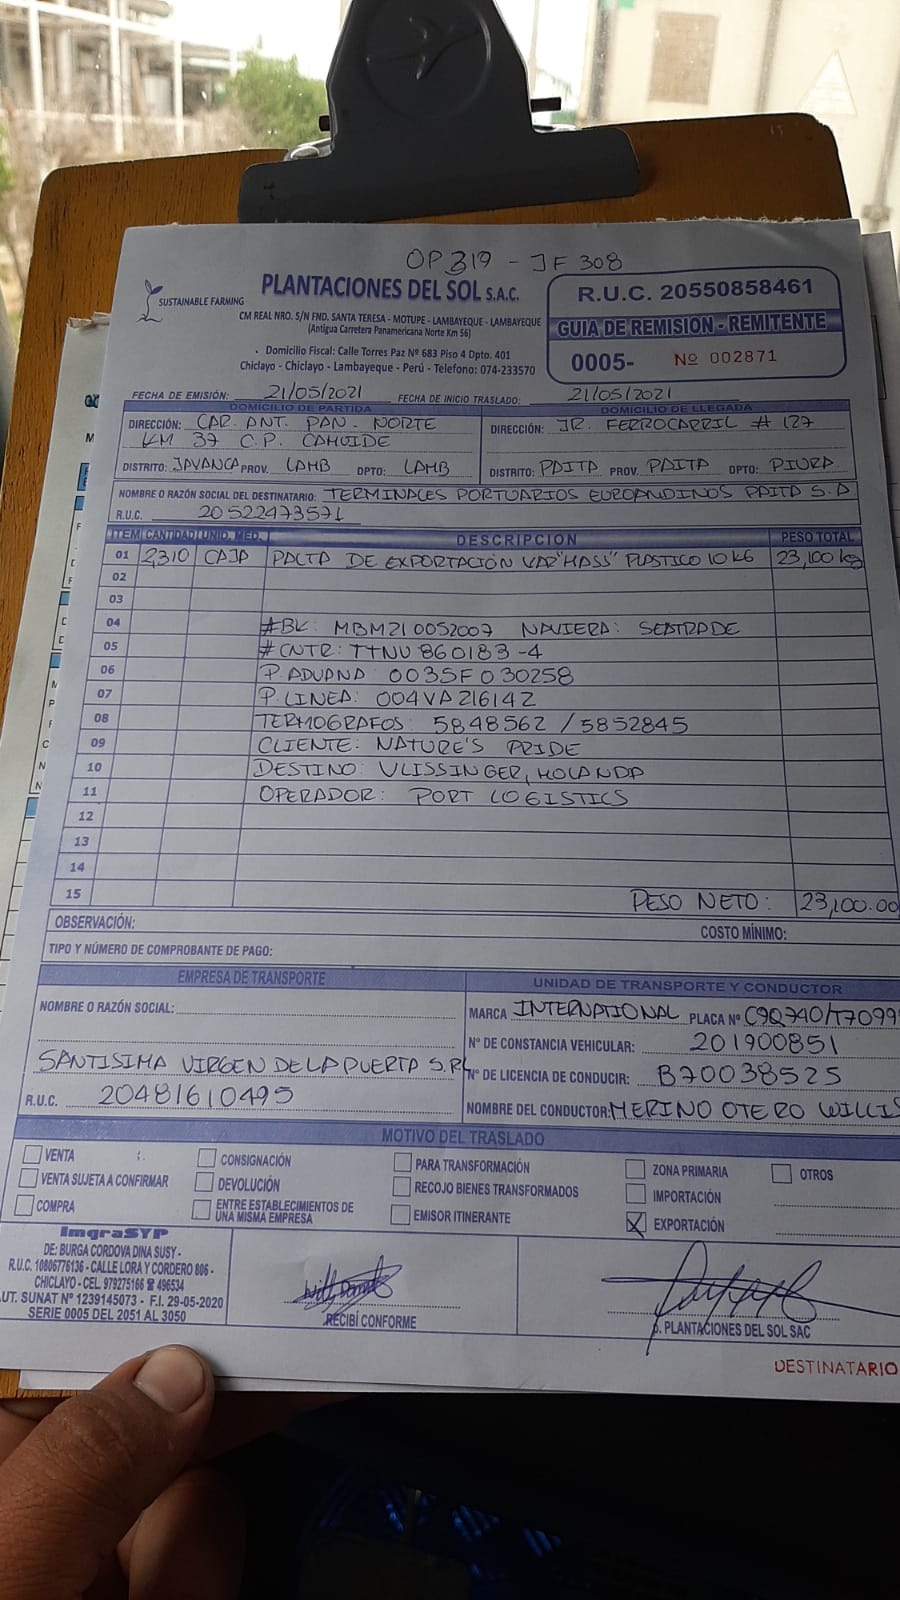 OP 319 - JF 308
SUSTAINABLE FARMING
PLANTACIONES DEL SOL S.A.C.
CM REAL NRO. S/N FND. SANTA TERESA - MOTUPE - LAMBAYEQUE - LAMBAYEQUE
(Antigua Carretera Panamericana Norte Km 56)
Domicilio Fiscal: Calle Torres Paz Nº 683 Piso 4 Dpto. 401
Chiclayo - Chiclayo - Lambayeque - Perú - Telefono: 074-233570
R.U.C. 20550858461
GUIA DE REMISION - REMITENTE
0005- Nº 002871
FECHA DE EMISIÓN: 21/05/2021 FECHA DE INICIO TRASLADO: 21/05/2021
DOMICILIO DE PARTIDA DOMICILIO DE LLEGADA
DIRECCIÓN: CAR. ANT. PAN. NORTE DIRECCIÓN: JR. FERROCARRIL # 127
KM 37 C.P. CAHUIDE
DISTRITO: JAYANCA PROV. LAMB DPTO: LAMB DISTRITO: PAITA PROV. PAITA DPTO: PIURA
NOMBRE O RAZÓN SOCIAL DEL DESTINATARIO: TERMINALES PORTUARIOS EUROANDINOS PAITA S.A
R.U.C. 20522473571
ITEM CANTIDAD UNID. MED. DESCRIPCION PESO TOTAL
01 2,310 CAJA PALTA DE EXPORTACIÓN VAR "HASS" PLASTICO 10 KG 23,100 kg
02
03
04 #BK: MBM210052007 NAVIERA: SEATRADE
05 #CNTR: TTNU 860183-4
06 P. ADUANA 0035F030258
07 P. LINEA: 004VA216142
08 TERMOGRAFOS: 5848562 / 5852845
09 CLIENTE: NATURE'S PRIDE
10 DESTINO: VLISSINGER, HOLANDA
11 OPERADOR: PORT LOGISTICS
12
13
14
15 PESO NETO: 23,100.00
OBSERVACIÓN: COSTO MÍNIMO:
TIPO Y NÚMERO DE COMPROBANTE DE PAGO:
EMPRESA DE TRANSPORTE UNIDAD DE TRANSPORTE Y CONDUCTOR
NOMBRE O RAZÓN SOCIAL: MARCA INTERNATIONAL PLACA Nº C9Q740/T7099
Nº DE CONSTANCIA VEHICULAR: 201900851
SANTISIMA VIRGEN DE LA PUERTA S.RL Nº DE LICENCIA DE CONDUCIR: B70038525
R.U.C. 20481610495 NOMBRE DEL CONDUCTOR: MERINO OTERO WILLIS
MOTIVO DEL TRASLADO
VENTA CONSIGNACIÓN PARA TRANSFORMACIÓN ZONA PRIMARIA OTROS
VENTA SUJETA A CONFIRMAR DEVOLUCIÓN RECOJO BIENES TRANSFORMADOS IMPORTACIÓN
COMPRA ENTRE ESTABLECIMIENTOS DE UNA MISMA EMPRESA EMISOR ITINERANTE EXPORTACIÓN
ImgraSYP
DE: BURGA CORDOVA DINA SUSY -
R.U.C. 10806776136 - CALLE LORA Y CORDERO 806 -
CHICLAYO - CEL. 979275166 ☎ 496534
AUT. SUNAT Nº 1239145073 - F.I. 29-05-2020
SERIE 0005 DEL 2051 AL 3050
RECIBÍ CONFORME
p. PLANTACIONES DEL SOL SAC
DESTINATARIO